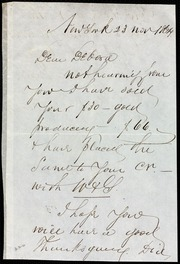 New York 23 Nov 1864
Dear Deborah
not hearing from
You I have sold
Your $30 - gold
producing $66
I have placed the
Same to Your Cr -
with
I hope You
will have a good
Thanksgiving